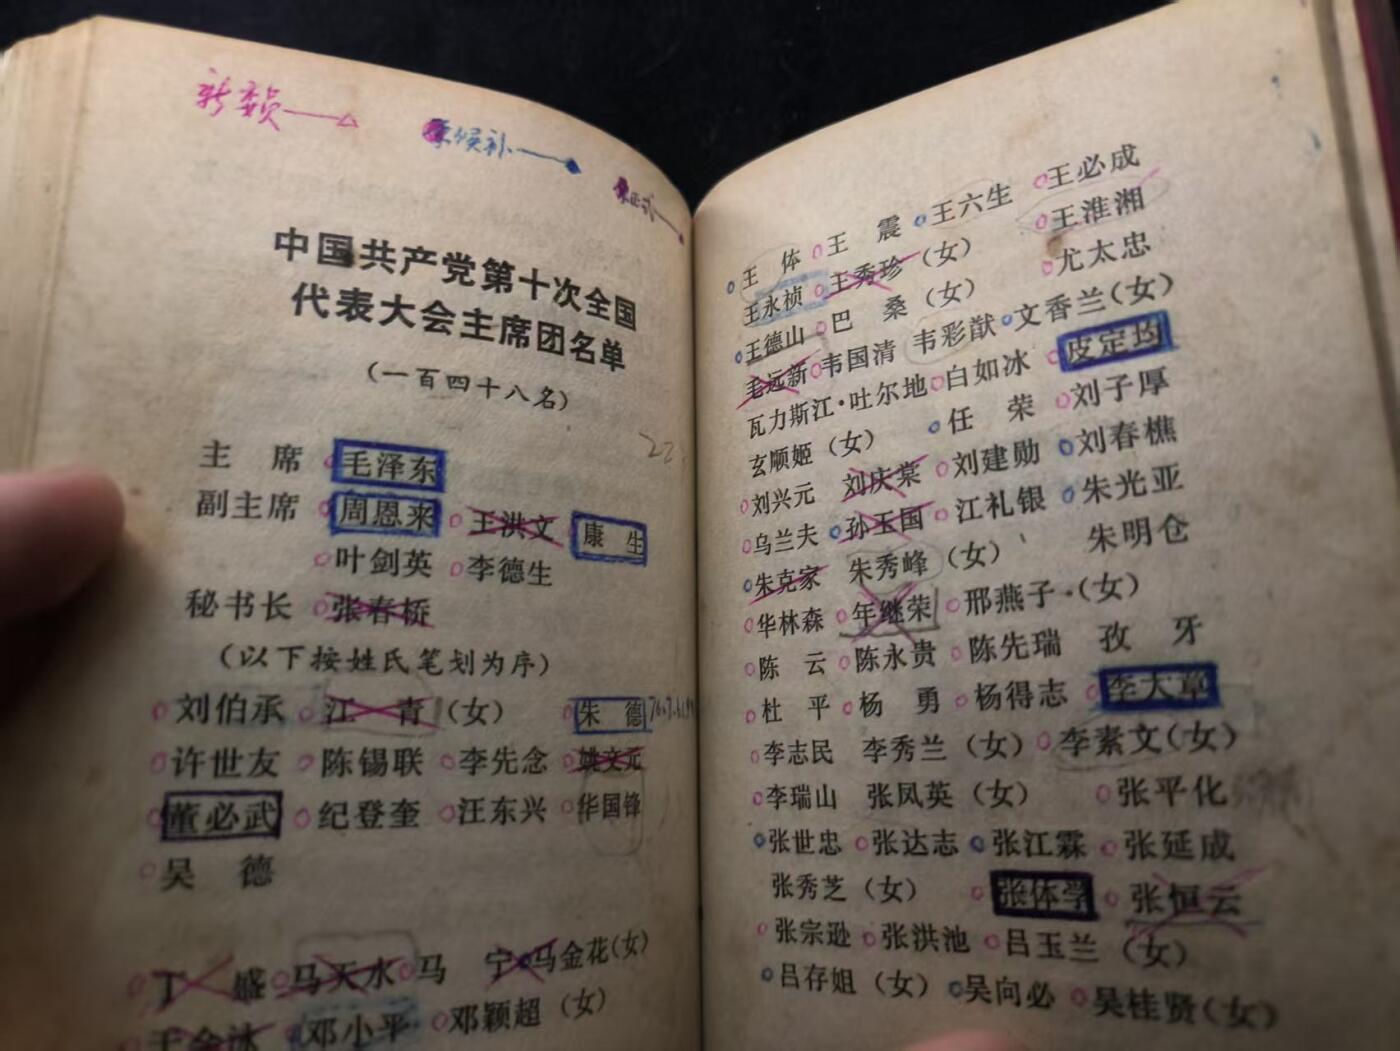 新委员——△
原候补——
原正式——
中国共产党第十次全国
代表大会主席团名单
(一百四十八名)
22
主 席 毛泽东
副主席 周恩来 王洪文 康 生
叶剑英 李德生
秘书长 张春桥
(以下按姓氏笔划为序)
刘伯承 江 青(女) 朱 德
许世友 陈锡联 李先念 姚文元
董必武 纪登奎 汪东兴 华国锋
吴 德
丁 盛 马天水 马 宁 马金花(女)
于会泳 邓小平 邓颖超(女)
王 体 王 震 王六生 王必成
王永祯 王秀珍(女) 王淮湘
王德山 巴 桑(女) 尤太忠
毛远新 韦国清 韦彩猷 文香兰(女)
瓦力斯江·吐尔地 白如冰 皮定均
玄顺姬(女) 任 荣 刘子厚
刘兴元 刘庆棠 刘建勋 刘春樵
乌兰夫 孙玉国 江礼银 朱光亚
朱克家 朱秀峰(女) 朱明仓
华林森 年继荣 邢燕子·(女)
陈 云 陈永贵 陈先瑞 孜 牙
杜 平 杨 勇 杨得志 李大章
李志民 李秀兰(女) 李素文(女)
李瑞山 张凤英(女) 张平化
张世忠 张达志 张江霖 张延成
张秀芝(女) 张体学 张恒云
张宗逊 张洪池 吕玉兰(女)
吕存姐(女) 吴向必 吴桂贤(女)